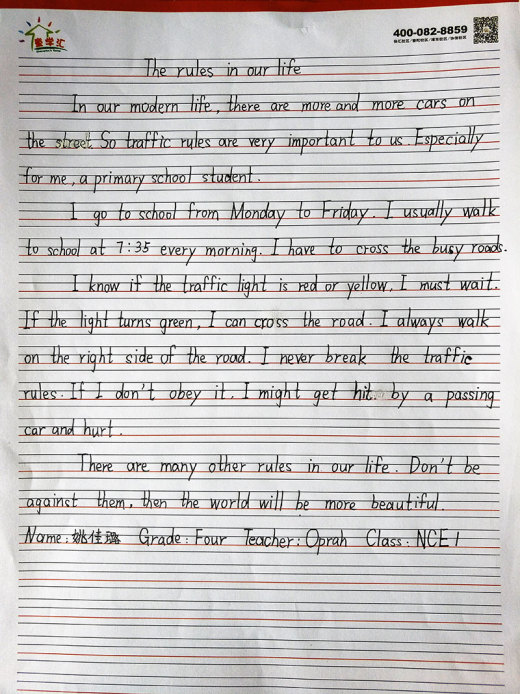 童学汇
400-082-8859
The rules in our life
In our modern life, there are more and more cars on
the street. So traffic rules are very important to us. Especially
for me, a primary school student.
I go to school from Monday to Friday. I usually walk
to school at 7:35 every morning. I have to cross the busy roads.
I know if the traffic light is red or yellow, I must wait.
If the light turns green, I can cross the road. I always walk
on the right side of the road. I never break the traffic
rules. If I don't obey it, I might get hit by a passing
car and hurt.
There are many other rules in our life. Don't be
against them, then the world will be more beautiful.
Name: 姚佳璐 Grade: Four Teacher: Oprah Class: NCE 1